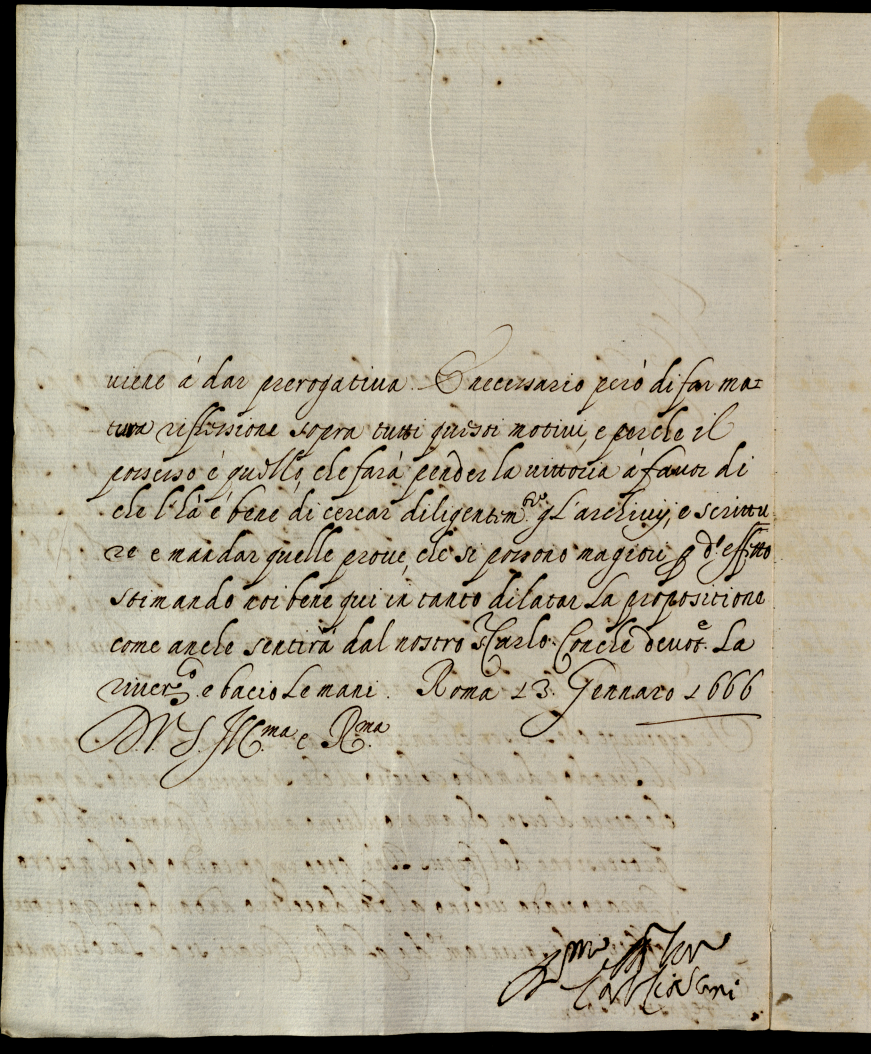 uiene á dar prerogatiua. É necessario però di far ma=
tura riflessione sopra tutti questi motiui, e perche il
possesso é quello, che farà pender la uittoria á fauor di
che l'hà é bene di cercar diligentem.te gl'archiuij, e scrittu
re e mandar quelle proue, che si possono magiori p d.o effetto
stimando noi bene qui in tanto dilatar la propositione
come anche sentirà dal nostro s.r Carlo. Con che deuot.e La
riuer.o e bacio le mani. Roma 23. Gennaro 1666
D V. S. Ill.ma e R.ma